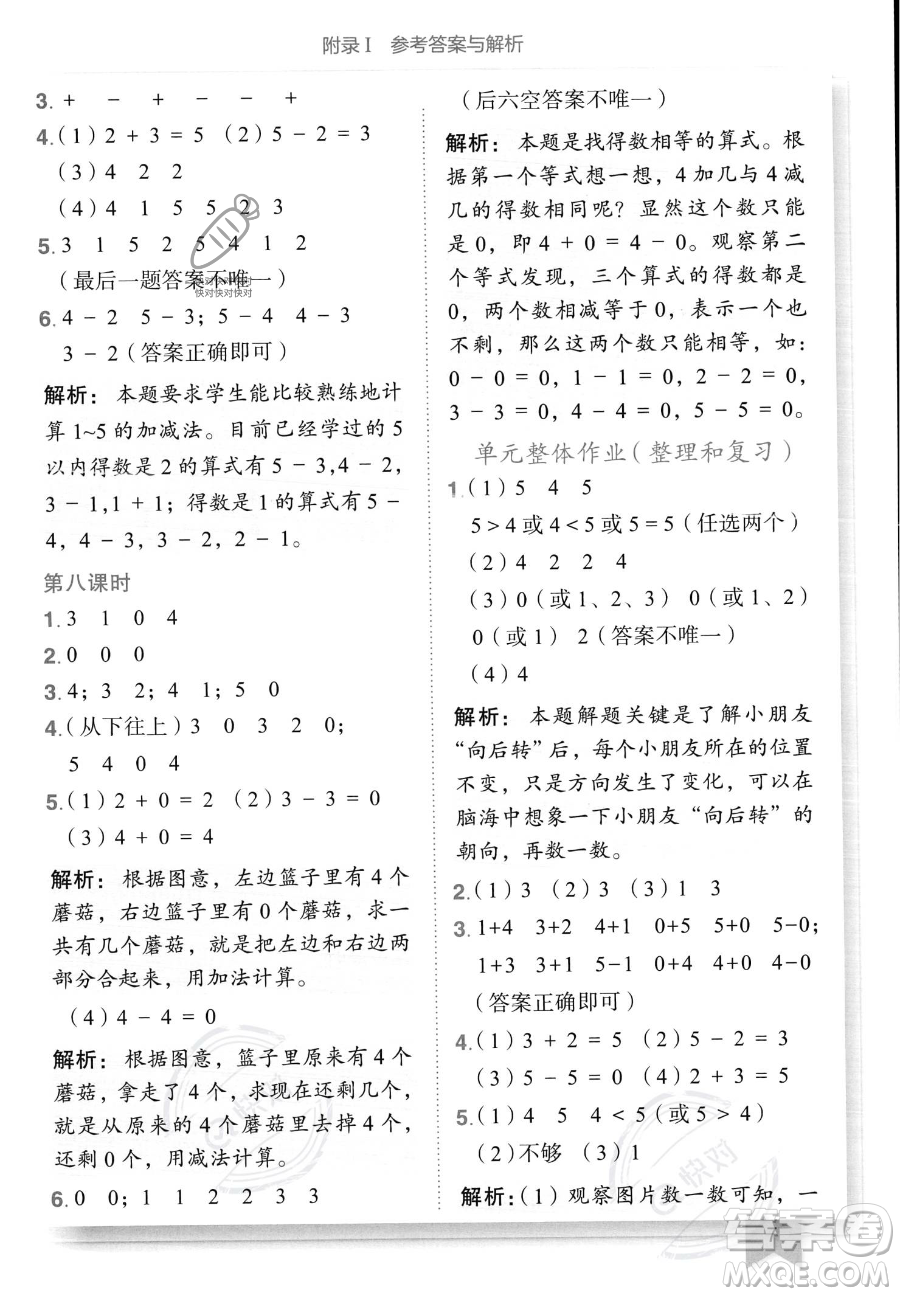 附录Ⅰ 参考答案与解析
3. + − − − +
4.(1)2 + 3 = 5 (2)5 − 2 = 3
(3)4 2 2
(4)4 1 5 5 2 3
5. 3 1 5 2 5 4 1 2
(最后一题答案不唯一)
快对快对快对
快对快对快对
6. 4 − 2 5 − 3; 5 − 4 4 − 3
3 − 2(答案正确即可)
解析: 本题要求学生能比较熟练地计
算 1~5 的加减法。目前已经学过的 5
以内得数是 2 的算式有 5 − 3,4 − 2,
3 − 1,1 + 1; 得数是 1 的算式有 5 −
4, 4 − 3, 3 − 2, 2 − 1。
第八课时
1. 3 1 0 4
2. 0 0 0
3. 4; 3 2; 4 1; 5 0
4.(从下往上)3 0 3 2 0;
5 4 0 4
5.(1)2 + 0 = 2 (2)3 − 3 = 0
(3)4 + 0 = 4
解析: 根据图意, 左边篮子里有 4 个
蘑菇, 右边篮子里有 0 个蘑菇, 求一
共有几个蘑菇, 就是把左边和右边两
部分合起来, 用加法计算。
(4)4 − 4 = 0
解析: 根据图意, 篮子里原来有 4 个
蘑菇, 拿走了 4 个, 求现在还剩几个,
就是从原来的 4 个蘑菇里去掉 4 个,
还剩 0 个, 用减法计算。
6. 0 0; 1 1 2 2 3 3
(后六空答案不唯一)
解析: 本题是找得数相等的算式。根
据第一个等式想一想, 4 加几与 4 减
几的得数相同呢? 显然这个数只能
是 0, 即 4 + 0 = 4 − 0。观察第二
个等式发现, 三个算式的得数都是
0, 两个数相减等于 0, 表示一个也
不剩, 那么这两个数只能相等, 如:
0 − 0 = 0, 1 − 1 = 0, 2 − 2 = 0,
3 − 3 = 0, 4 − 4 = 0, 5 − 5 = 0。
单元整体作业(整理和复习)
1.(1)5 4 5
5 > 4 或 4 < 5 或 5 = 5(任选两个)
(2)4 2 2 4
(3)0(或 1、2、3) 0(或 1、2)
0(或 1) 2(答案不唯一)
(4)4
解析: 本题解题关键是了解小朋友
“向后转”后, 每个小朋友所在的位置
不变, 只是方向发生了变化, 可以在
脑海中想象一下小朋友“向后转”的
朝向, 再数一数。
2.(1)3 (2)3 (3)1 3
3. 1+4 3+2 4+1 0+5 5-0;
1+3 3+1 5-1 0+4 4-0
(答案正确即可)
4.(1)3 + 2 = 5 (2)5 − 2 = 3
(3)5 − 5 = 0 (4)5 − 2 = 3
5.(1)4 5 4 < 5(或 5 > 4)
(2)不够 (3)1
解析:(1) 观察图片数一数可知, 一
快对
答案卷
MXQE.COM